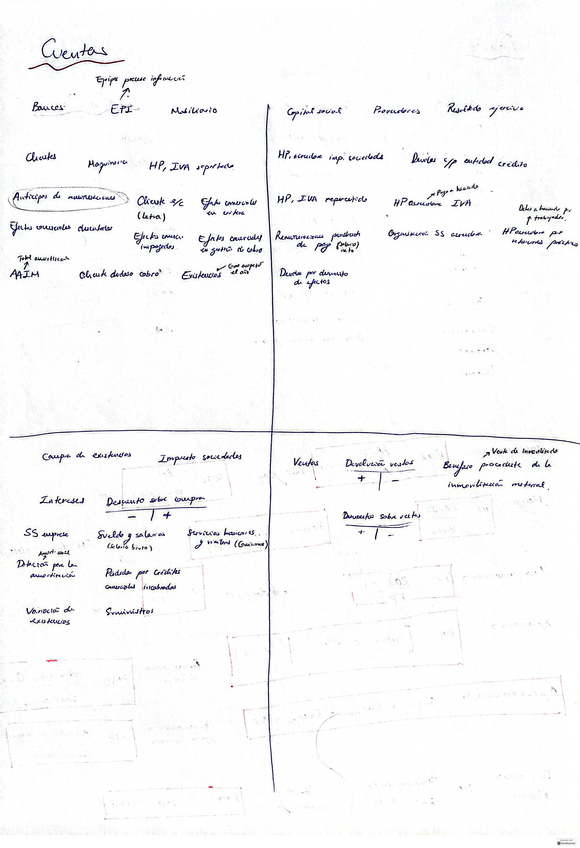 Cuentas
Equipo proceso información
Bancos EPI Mobiliario
Clientes Maquinaria HP, IVA soportado
Anticipos de remuneraciones Cliente e/c Efectos comerciales
(letra) en cartera
Efectos comerciales descontados Efectos comerc. Efectos comerciales
impagados en gestión de cobro
Total amortización
AAIM Cliente dudoso cobro Existencias
el año
Capital social Proveedores Resultado ejercicio
HP, acreedora imp. sociedades Deudas c/p entidad crédito
Pago a hacienda
HP, IVA repercutido HP acreedora IVA
Remuneraciones pendiente Organización SS acreedora HP acreedora por
de pago (salario) retenciones practica
neto
Deudas por descuento
de efectos
Compra de existencias Impuesto sociedades
Intereses Descuento sobre compra
- | +
SS empresa Sueldo y salarios Servicios bancarios
(salario bruto) y similares (Comisiones)
Dotación para la Pérdida por créditos
amortización comerciales incobrables
Variación de Suministros
existencias
Venta de inmovilizado
Ventas Devolución ventas Beneficio procedente de la
+ | - inmovilización material.
Descuentos sobre ventas
+ | -